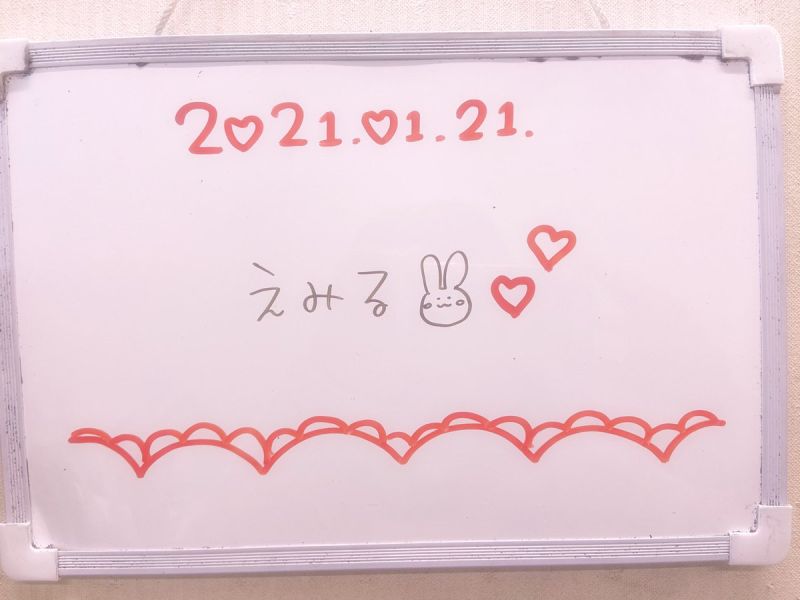 2♡21.♡1.21.
えみる